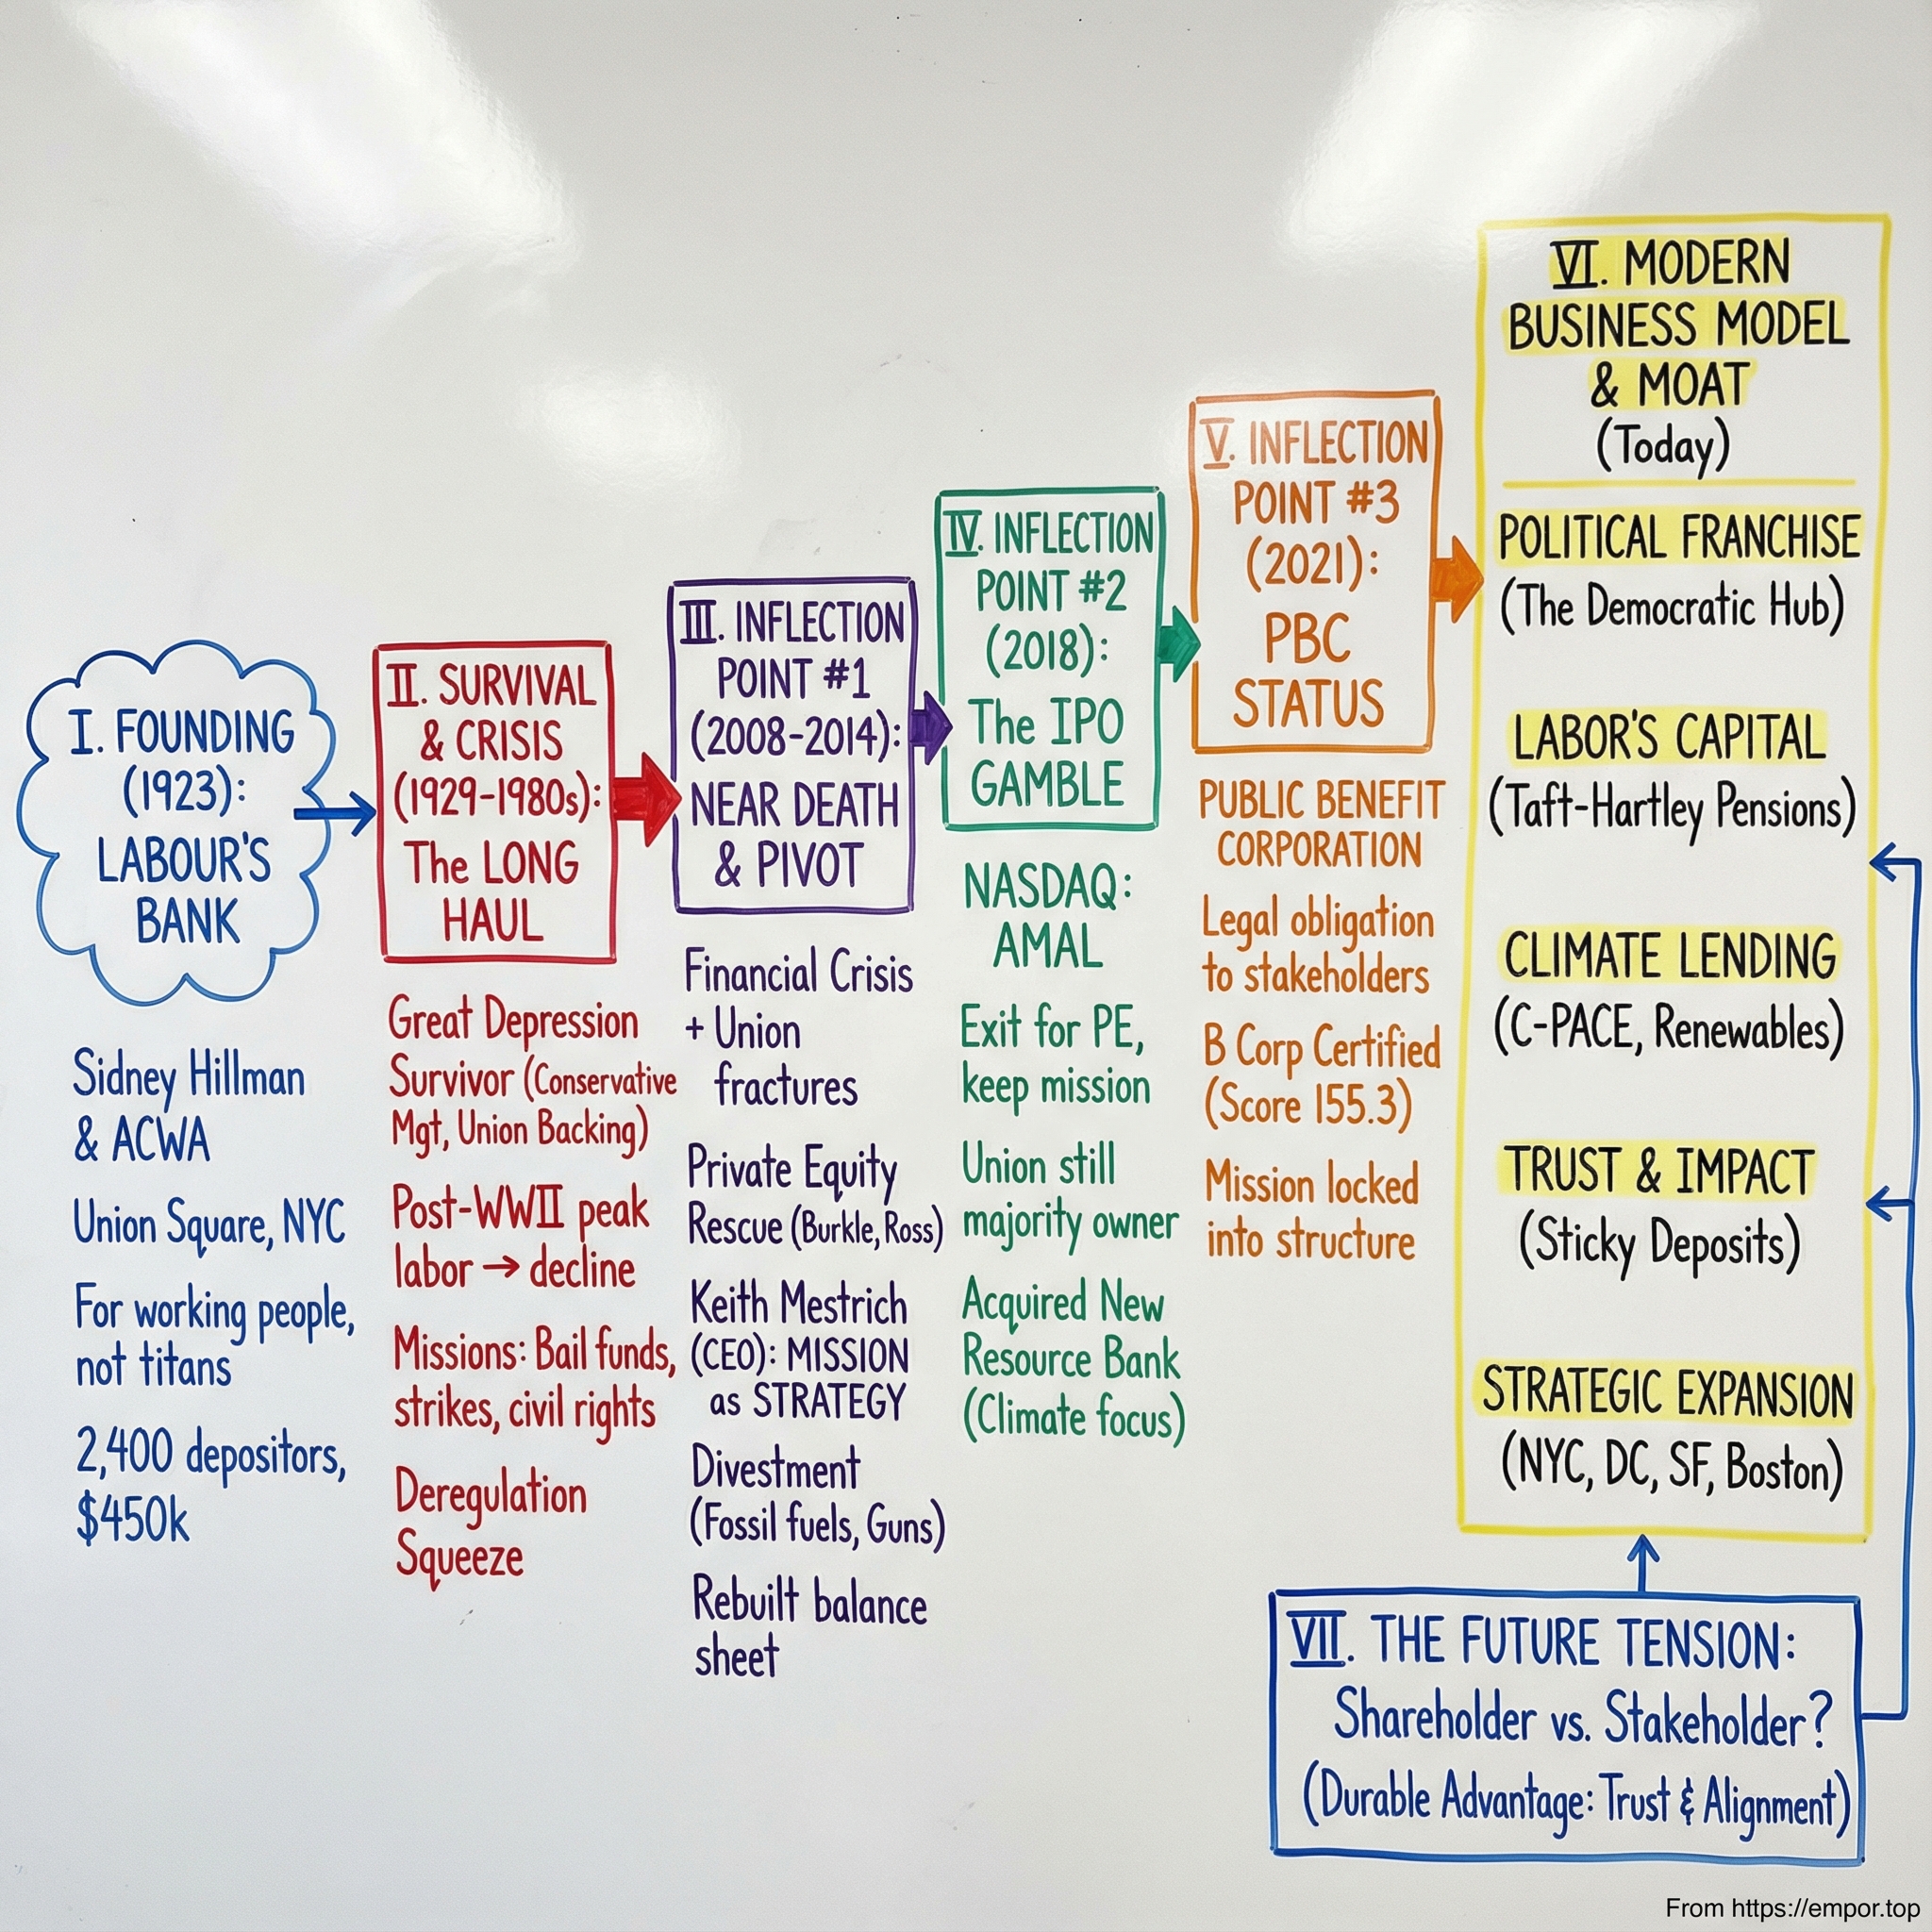 I. FOUNDING
(1923):
LABOUR'S
BANK
Sidney Hillman
& ACWA
Union Square, NYC
For working people,
not titans
2,400 depositors,
$450k
II. SURVIVAL
& CRISIS
(1929-1980s):
The LONG
HAUL
Great Depression
Survivor (Conservative
Mgt, Union Backing)
Post-WWII peak
labor → decline
Missions: Bail funds,
strikes, civil rights
Deregulation
Squeeze
III. INFLECTION
POINT #1
(2008-2014):
NEAR DEATH
& PIVOT
Financial Crisis
+ Union
fractures
Private Equity
Rescue (Burkle, Ross)
Keith Mestrich
(CEO): MISSION
as STRATEGY
Divestment
(Fossil fuels, Guns)
Rebuilt balance
sheet
IV. INFLECTION
POINT #2
(2018):
The IPO
GAMBLE
NASDAQ:
AMAL
Exit for PE,
keep mission
Union still
majority owner
Acquired New
Resource Bank
(Climate focus)
V. INFLECTION
POINT #3
(2021):
PBC
STATUS
PUBLIC BENEFIT
CORPORATION
Legal obligation
to stakeholders
B Corp Certified
(Score 155.3)
Mission locked
into structure
VI. MODERN
BUSINESS MODEL
& MOAT
(Today)
POLITICAL FRANCHISE
(The Democratic Hub)
LABOR'S CAPITAL
(Taft-Hartley Pensions)
CLIMATE LENDING
(C-PACE, Renewables)
TRUST & IMPACT
(Sticky Deposits)
STRATEGIC EXPANSION
(NYC, DC, SF, Boston)
VII. THE FUTURE TENSION:
Shareholder vs. Stakeholder?
(Durable Advantage: Trust & Alignment)
From https://empor.top